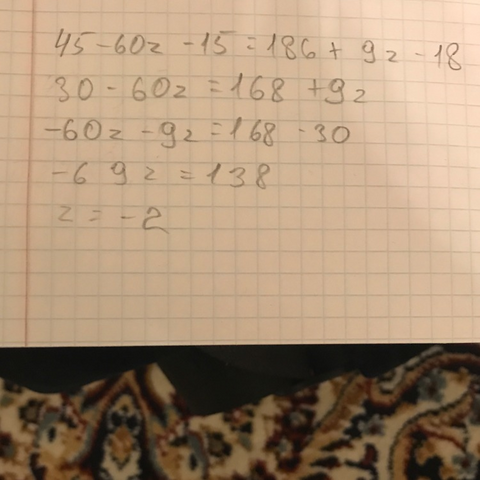 45 - 60z - 15 = 186 + 9z - 18
30 - 60z = 168 + 9z
-60z - 9z = 168 - 30
-69z = 138
z = -2